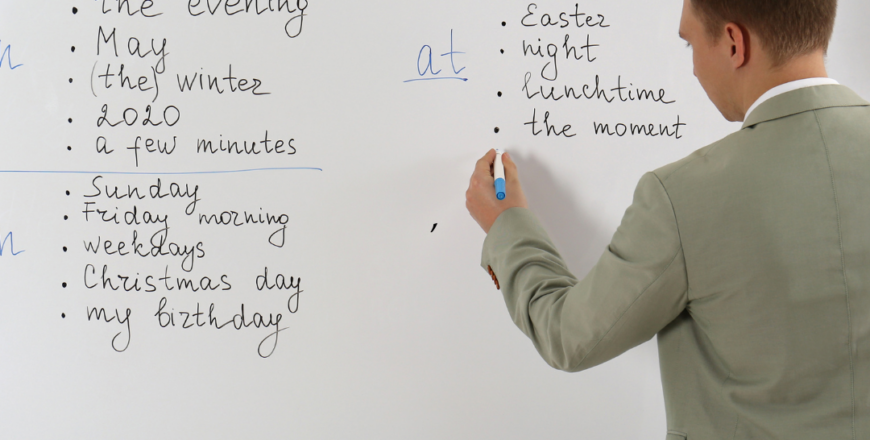 n
• the evening
• May
• (the) winter
• 2020
• a few minutes
n
• Sunday
• Friday morning
• weekdays
• Christmas day
• my birthday
at
• Easter
• night
• lunchtime
• the moment